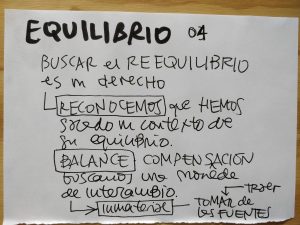 EQUILIBRIO 04
BUSCAR el REEQUILIBRIO
es un derecho
RECONOCEMOS que HEMOS
sacado un contexto de
su equilibrio.
BALANCE COMPENSACIÓN
buscamos una moneda
de intercambio.
traer
Inmaterial
TOMAR de
las FUENTES